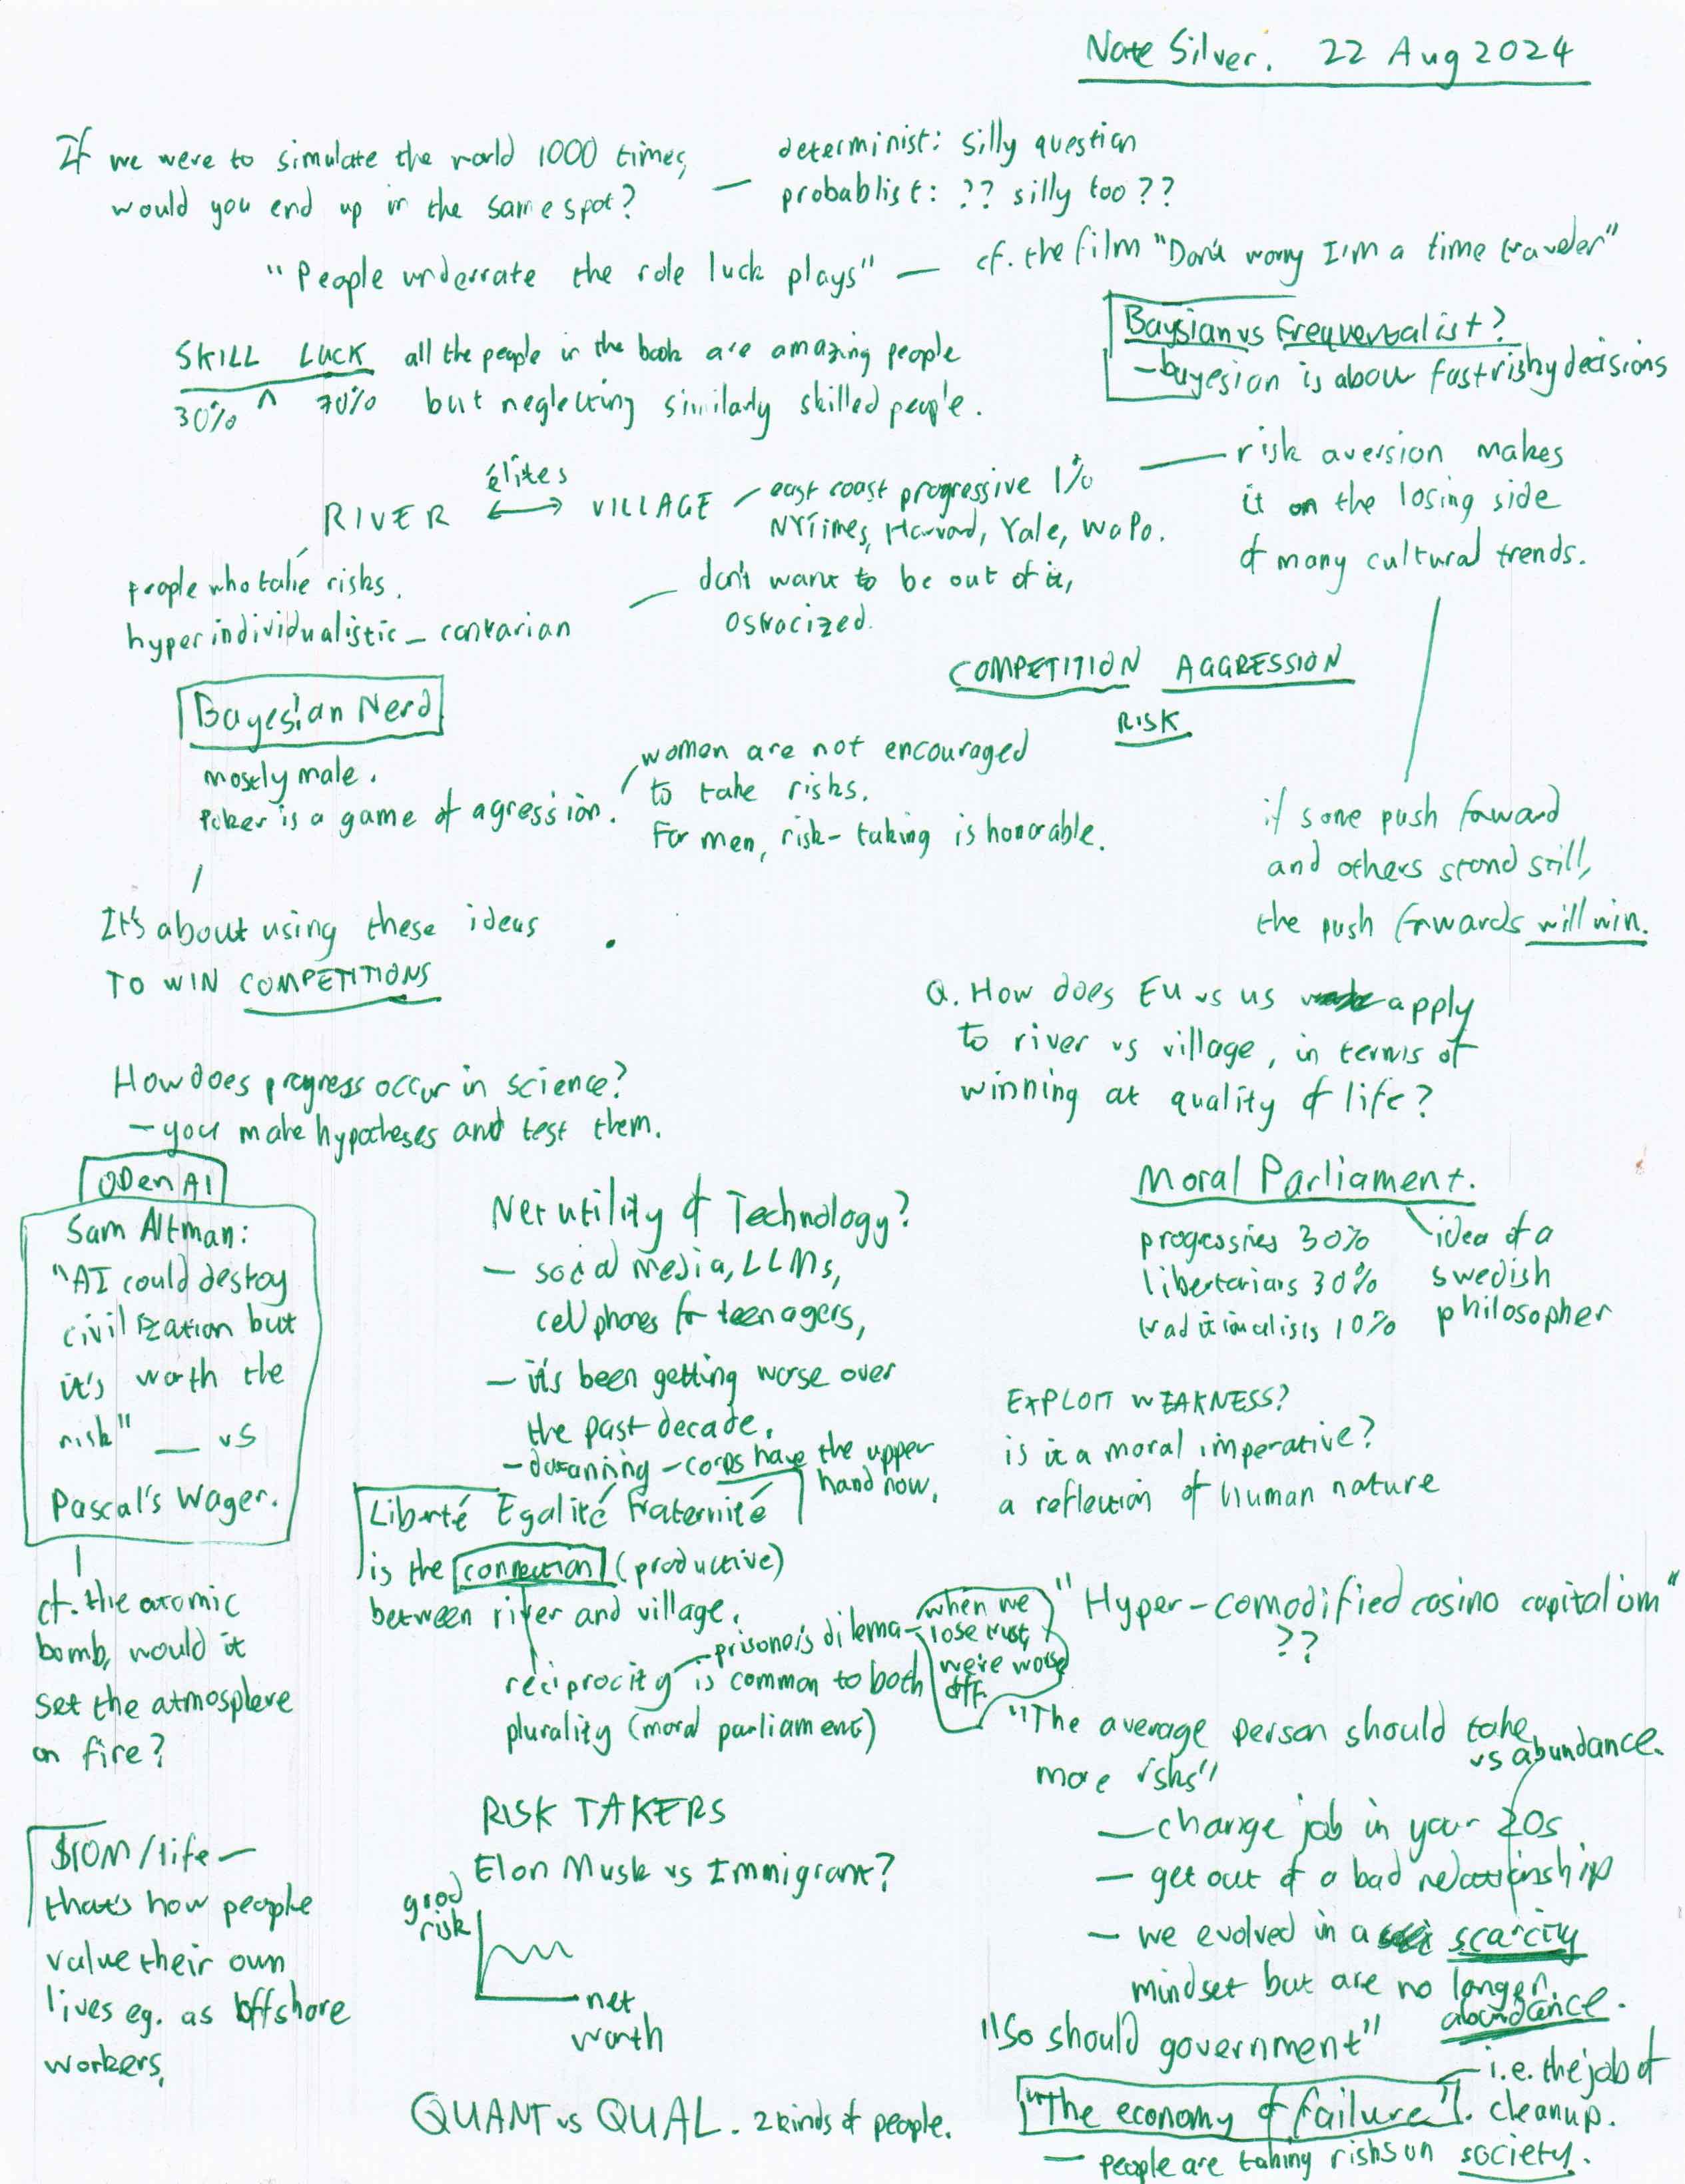 Nate Silver. 22 Aug 2024
If we were to simulate the world 1000 times,
would you end up in the same spot?
— determinist: silly question
probablist: ?? silly too ??
"People underrate the role luck plays" — cf. the film "Don't worry I'm a time traveler"
Baysian vs Frequentalist?
— bayesian is about fast risky decisions
SKILL LUCK all the people in the book are amazing people
30% ^ 70% but neglecting similarly skilled people.
élites
RIVER ↔ VILLAGE
east coast progressive 1%
NYTimes, Harvard, Yale, WaPo.
— risk aversion makes
it on the losing side
of many cultural trends.
people who take risks.
hyperindividualistic – contrarian
— don't want to be out of it,
ostrocized.
COMPETITION AGGRESSION
RISK
Bayesian Nerd
mostly male.
Poker is a game of agression.
women are not encouraged
to take risks.
For men, risk-taking is honorable.
if some push forward
and others stand still,
the push forwards will win.
It's about using these ideas
TO WIN COMPETITIONS
Q. How does EU vs US apply
to river vs village, in terms of
winning at quality of life?
How does progress occur in science?
— you make hypotheses and test them.
OpenAI
Sam Altman:
"AI could destroy
civilization but
it's worth the
risk" — vs
Pascal's Wager.
cf. the atomic
bomb, would it
set the atmosphere
on fire?
Net utility of Technology?
— social media, LLMs,
cell phones for teenagers,
— it's been getting worse over
the past decade.
— corps have the upper
hand now.
Moral Parliament.
progressives 30%
libertarians 30%
traditionalists 10%
idea of a
swedish
philosopher
EXPLOIT WEAKNESS?
is it a moral imperative?
a reflection of human nature
Liberté Egalité Fraternité
is the connection (productive)
between river and village.
reciprocity is common to both
plurality (moral parliament)
prisoner's dilema —
when we
lose trust,
we're worse
off.
"Hyper-comodified casino capitalism"
??
"The average person should take
more risks"
— change job in your 20s
— get out of a bad relationship
— we evolved in a scarcity
mindset but are no longer.
vs abundance.
abundance.
"So should government"
"The economy of failure".
— i.e. the job of
cleanup.
— people are taking risks on society.
$10M/life —
that's how people
value their own
lives eg. as offshore
workers,
RISK TAKERS
Elon Musk vs Immigrant?
good
risk
net
worth
QUANT vs QUAL. 2 kinds of people.